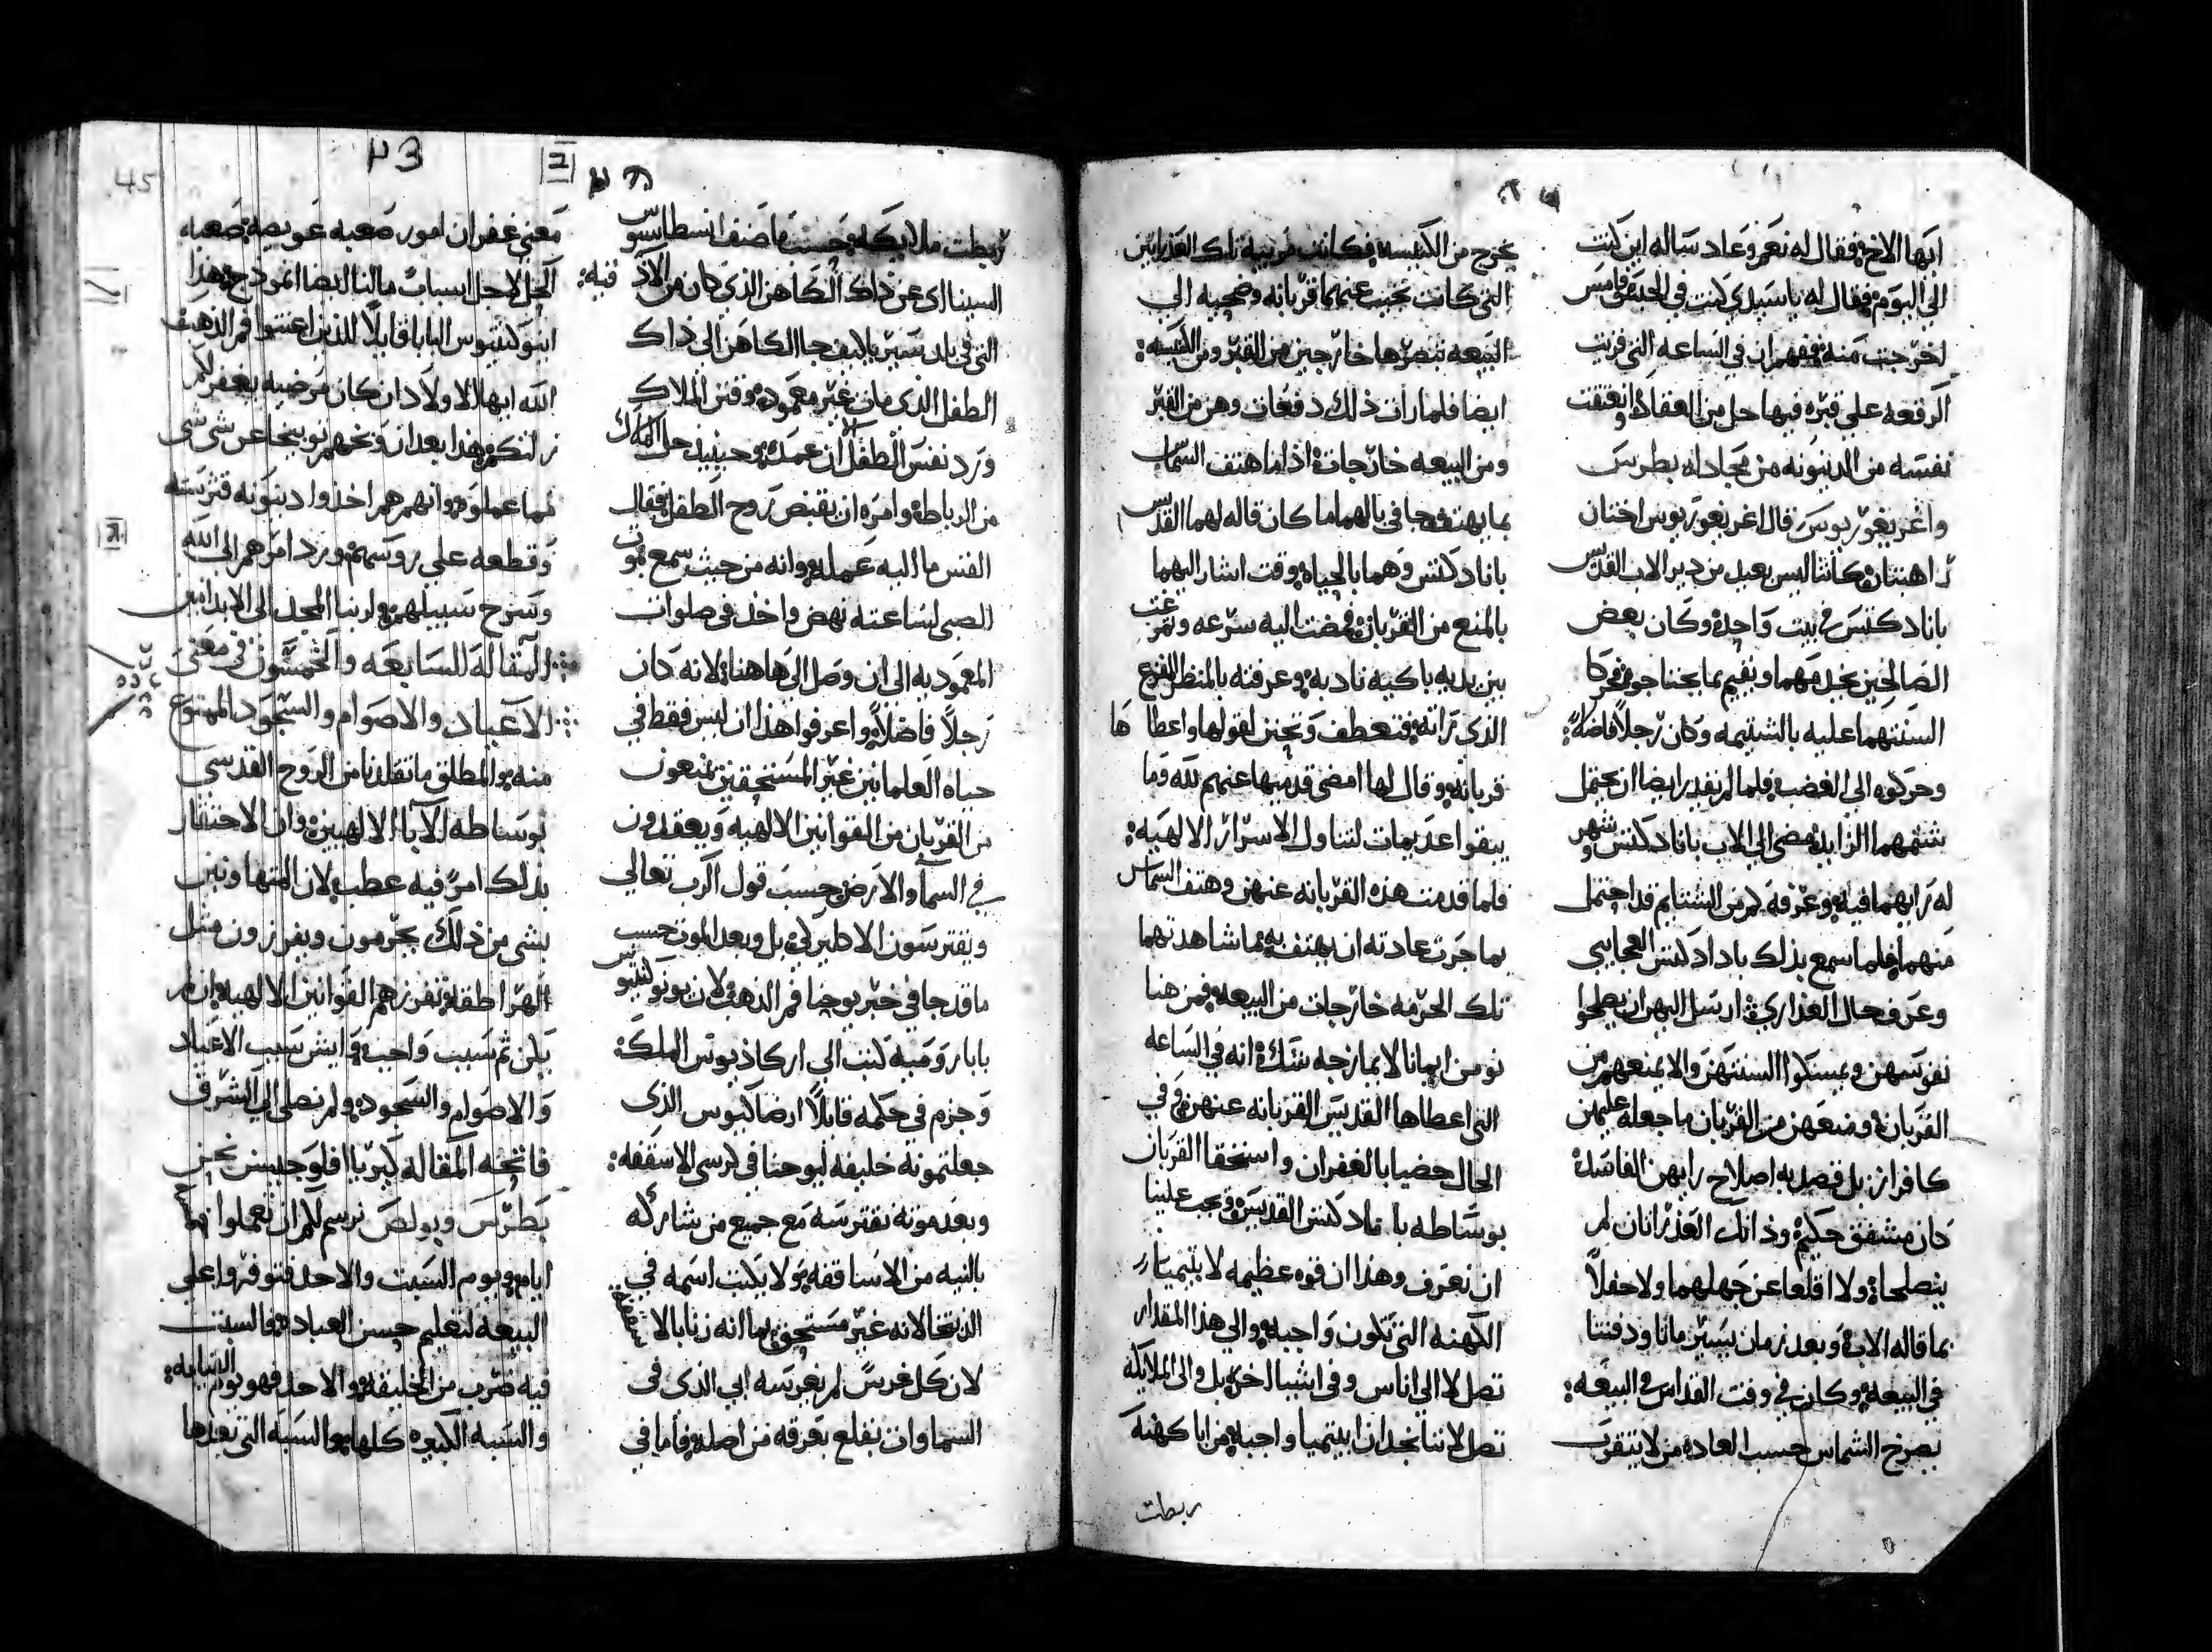 ايها الاخ فقال له نعم وعاد ساله اين كنت
الي اليوم فقال له ياسيدي كنت في الحبس وامس
اخرجت منه ففهم ان في الساعه التي قريت
الرقعه علي قبره فيها حل من العقاد وانعتقت
نفسه من الدينونه من مجاداه بطرس
واغريغوريوس قال اغريغوريوس اختان
راهبتان كانتا ليس بعيد من دير الاب القديس
باناد كتس في بيت واحد وكان بعض
الصالحين يخدمهما ويقيم بما يحتاجو فحركا
السنتهما عليه بالشتيمه وكان رجلاً فاضلاً
وحركوه الي الغضب فلما لم يقدر ايضا ان يحتمل
شتمهما الزايد مضي الي الاب باناد كتس وشهر
له رايهما فيه وعرفه كم من الشتايم قد احتمل
منهما فلما سمع بذلك باداد كتس العجايبي
وعرف حال العذاري ارسل اليهن ان يصلحوا
نفوسهن ويمسكوا السنتهن والا يمنعهم من
القربان ومنعهن من القربان ما جعله عليهن
كافراز بل قصد به اصلاح رايهن الفاسد
كان مشفق حكيم وذانك العذرانان لم
ينصلحا ولا اقلعا عن جهلهما ولا حفلاً
بما قاله الاب وبعد زمان يسير ماتا ودفنتا
في البيعه وكان في وقت القداس في البيعه
يصرخ الشماس حسب العاده من لا يتقرب
يخرج من الكنيسه فكانت مربيه تلك العذرايتين
التي كانت تجيب عنهما قربانه وضحيه الي
البيعه تبصرها خارجين من القبر ومن الكنيسه
ايضا فلما رات ذلك دفعات وهن من القبر
ومن البيعه خارجات اذا ما هتف الشماس
بما يهتف جا في بالهما ما كان قاله لهما القديس
باناد كتس وهما بالحياه وقت اشار اليهما
بالمنع من القربان فمضت اليه سرعه وتمرغت
بين يديه باكيه نادبه وعرفته بالمنظر المفزع
الذي راته فتعطف وتحنن لقولها واعطاها
قربانه وقال لها امضي قدميها عنهم لله وما
يبقوا عديمات لتناول الاسرار الالهيه
فلما قدمت هذه القربانه عنهن وهتف الشماس
بما جرت عادته ان يهتف به ما شاهدتهما
تلك الحرمه خارجات من البيعه فمن هنا
نومن ايمانا لا يمازجه شك انه في الساعه
التي اعطاها القديس القربانه عنهن وفي
الحال حضيا بالغفران واستحقا القربان
بوساطه باناد كتس القديس ويجب علينا
ان نعرف وهذا ان قوه عظيمه لابتيميا
الكهنه التي تكون واجبه والي هذا المقدار
تصل لا الي اناس وفي اشيا اخر بل والي الملايكه
تصل لاننا نجد ان ابتميا واجبه من ايا كهنه
ربطت
ربطت ملايكه حسب ما صنف انسطاسيوس
السيناي عن ذاك الكاهن الذي كان من الاذقيه
التي في بلد سيريا كيف جا الكاهن الي ذاك
الطفل الذي مات غير معموده وقتن الملاك
ورد نفس الطفل الي ان عمده وحينيذ حل الملاك
من الرباط وامره ان يقبض روح الطفل فقال
القس ما اليه عمله وانه من حيث سمع موت
الصبي لساعته نهض واخذ في صلوات
المعموديه الي ان وصل الي ها هنا لانه كان
رجلاً فاضلاً واعرفوا هذا ان ليس فقط في
حياه العلمانيين غير المستحقين يمنعون
من القربان من القوانين الالهيه ويعقدون
في السما والارض حسب قول الرب تعالي
ويفترسون الاكليركي بل وبعد الموت حسب
ما قد جا في خبر يوحنا فم الذهب لان يونوكنتيوس
بابا روميه كتب الي اركاذيوس الملك
وجزم في حكمه قايلاً ارضاكيوس الذي
جعلتموه خليفه ليوحنا في كرسي الاسقفه
وبعد موته نفترسه مع جميع من شاركه
بالنيه من الاساقفه ولا يكتب اسمه في
الذبتخا لانه غير مستحق بما انه زنا بالاسقفيه
لان كل غرس لم يغرسه ابي الذي في
السماوات يقلع بعرقه من اصله فاما في
معني غفران امور صعبه عويصه صعبه
الحل لاجل اسباب ما لنا ايضا انموذج هذا
اينوكنتيوس البابا قايلاً للذين اعتنوا فم الذهب
الله ايها الاولاد ان كان مرضيه يغفر لكم
زلتكم هذا بعد ان وبخهم توبيخا عن شي شي
مما عملوه وانهم هم اخذوا دينونه فترسته
وقطعه علي روسهم ورد امرهم الي الله
وسرح سبيلهم ولربنا المجد الي الابد امين
المقاله السابعه والخمسون في معني
الاعياد والاصوام والسجود الممنوع
منه والمطلق ما تقلدنا من الروح القدسي
بوساطه الابا الالهيين وان الاحتقار
بذلك امرً فيه عطب لان المتهاونين
بشي من ذلك يحرمون ويفرزون مثل
الهراطقه تفرزهم القوانين الالهيه وان لم
يكن ثم سبب واجب وايش سبب الاعياد
والاصوام والسجود ولم نصلي الي الشرق
فاتحه المقاله كيريا افلوجيسن نحن
بطرس وبولص نرسم لكم ان تعملوا خمسه
ايام ويوم السبت والاحد فتوفروا علي
البيعه لتعليم حسن العباده فالسبت
فيه ضرب من الخليقه والاحد فهو يوم القيامه
والسبه الكبيره كلها مع السبه التي بعدها